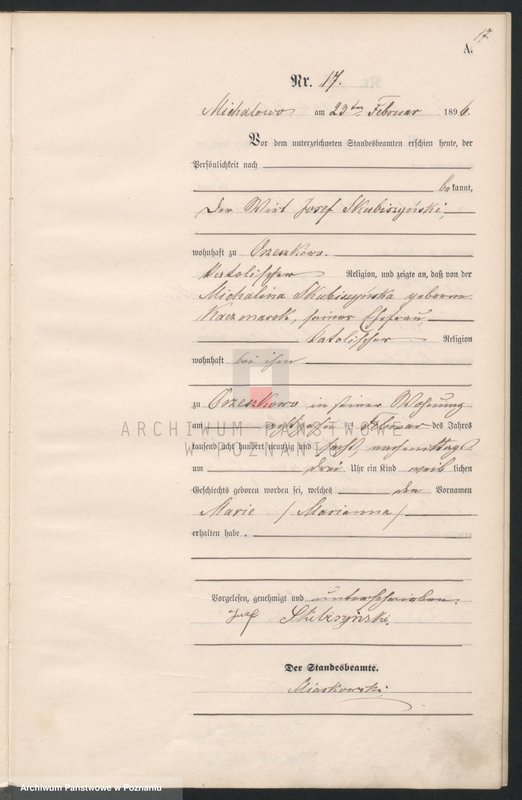 17.
A.
Nr. 17.
Michalowo am 23ten Februar 1896.
Vor dem unterzeichneten Standesbeamten erschien heute, der
Persönlichkeit nach
be kannt,
der Wirt Josef Skubiszyński,
wohnhaft zu Orzeszkowo.
katolischer Religion, und zeigte an, daß von der
Michalina Skubiszyńska geborene
Kaczmarek, seiner Ehefrau
katolischer Religion
wohnhaft bei ihm
zu Orzeszkowo in seiner Wohnung
am Februar des Jahres
tausend acht hundert neunzig und sechs, nachmittags
um drei Uhr ein Kind weib lichen
Geschlechts geboren worden sei, welches den Vornamen
Marie / Marianna /
erhalten habe.
Vorgelesen, genehmigt und unterschrieben.
Josef Skubiszyński.
Der Standesbeamte.
Miaskowski
ARCHIWUM PAŃSTWOWE
W POZNANIU
Archiwum Państwowe w Poznaniu